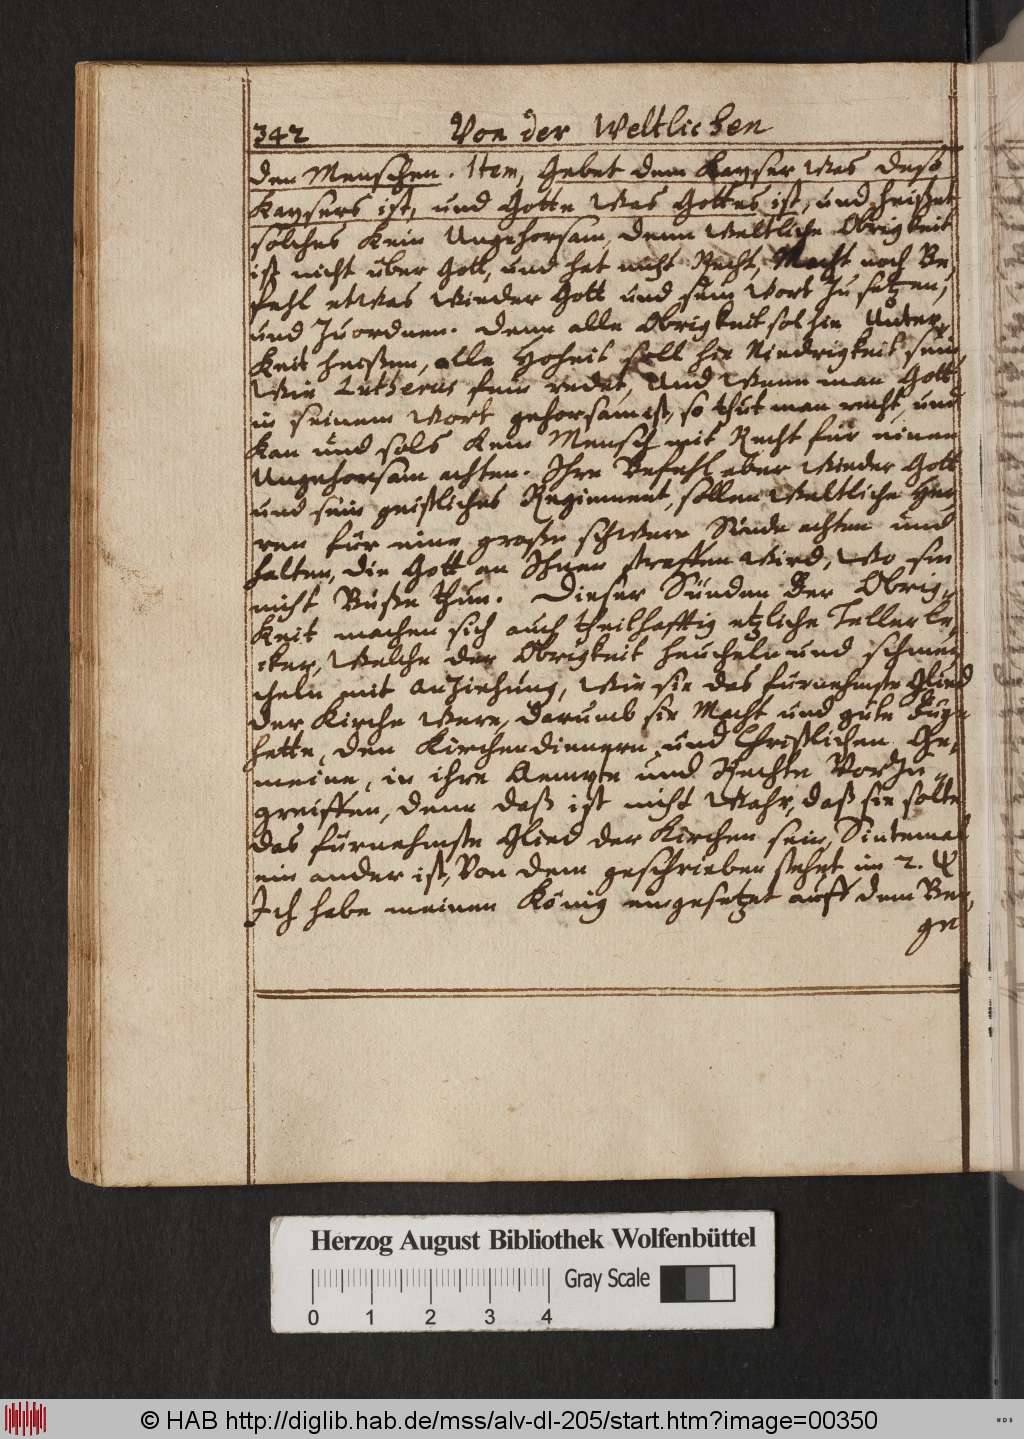 342 Von der Weltlichen
den Menschen. Item, Gebet dem Kayser Was deß
Kaysers ist, und Gotte Was Gottes ist, und heißet
solches kein Ungehorsam, denn Weltliche Obrigkeit
ist nicht über Gott, und hat nicht Recht, Macht noch Be,
fehl etWas Wieder Gott und sein Wort zu setzen,
und zu ordnen. denn alle Obrigkeit sol hie Unter,
keit heißen, alle Hoheit soll hie Niedrigkeit sein,
Wie Lutherus fein redet, Und Wenn man Gott
in seinem Wort gehorsam ist, so thut man recht, und
kan und sols kein Mensch mit Recht für einen
Ungehorsam achten. Ihre Befehl aber Wieder Gott
und sein geistliches Regiment, sollen Weltliche Her,
ren für eine große schWere Sünde achten und
halten, die Gott an Ihnen straffen Wird, Wo sie
nicht Buße thun. Dieser Sünden der Obrig,
keit machen sich auch theilhafftig etzliche Tellerle,
cker, Welche der Obrigkeit heucheln und schmei
cheln mit anziehung, Wie sie das fürnehmste Glied
der Kirche Were, darumb sie Macht und gute Fuge
hette, den Kirchendienern und Christlichen Ge,
meine, in ihre Aempte und Rechte Vorzu,
greiffen, denn daß ist nicht Wahr, daß sie solte
das fürnehmste Glied der Kirchen sein, Sintemal
ein ander ist, Von dem geschrieben stehet im 2. Ψ
Ich habe meinen König eingesetzet auff dem Ber,
ge
Herzog August Bibliothek Wolfenbüttel
Gray Scale
0 1 2 3 4
© HAB http://diglib.hab.de/mss/alv-dl-205/start.htm?image=00350